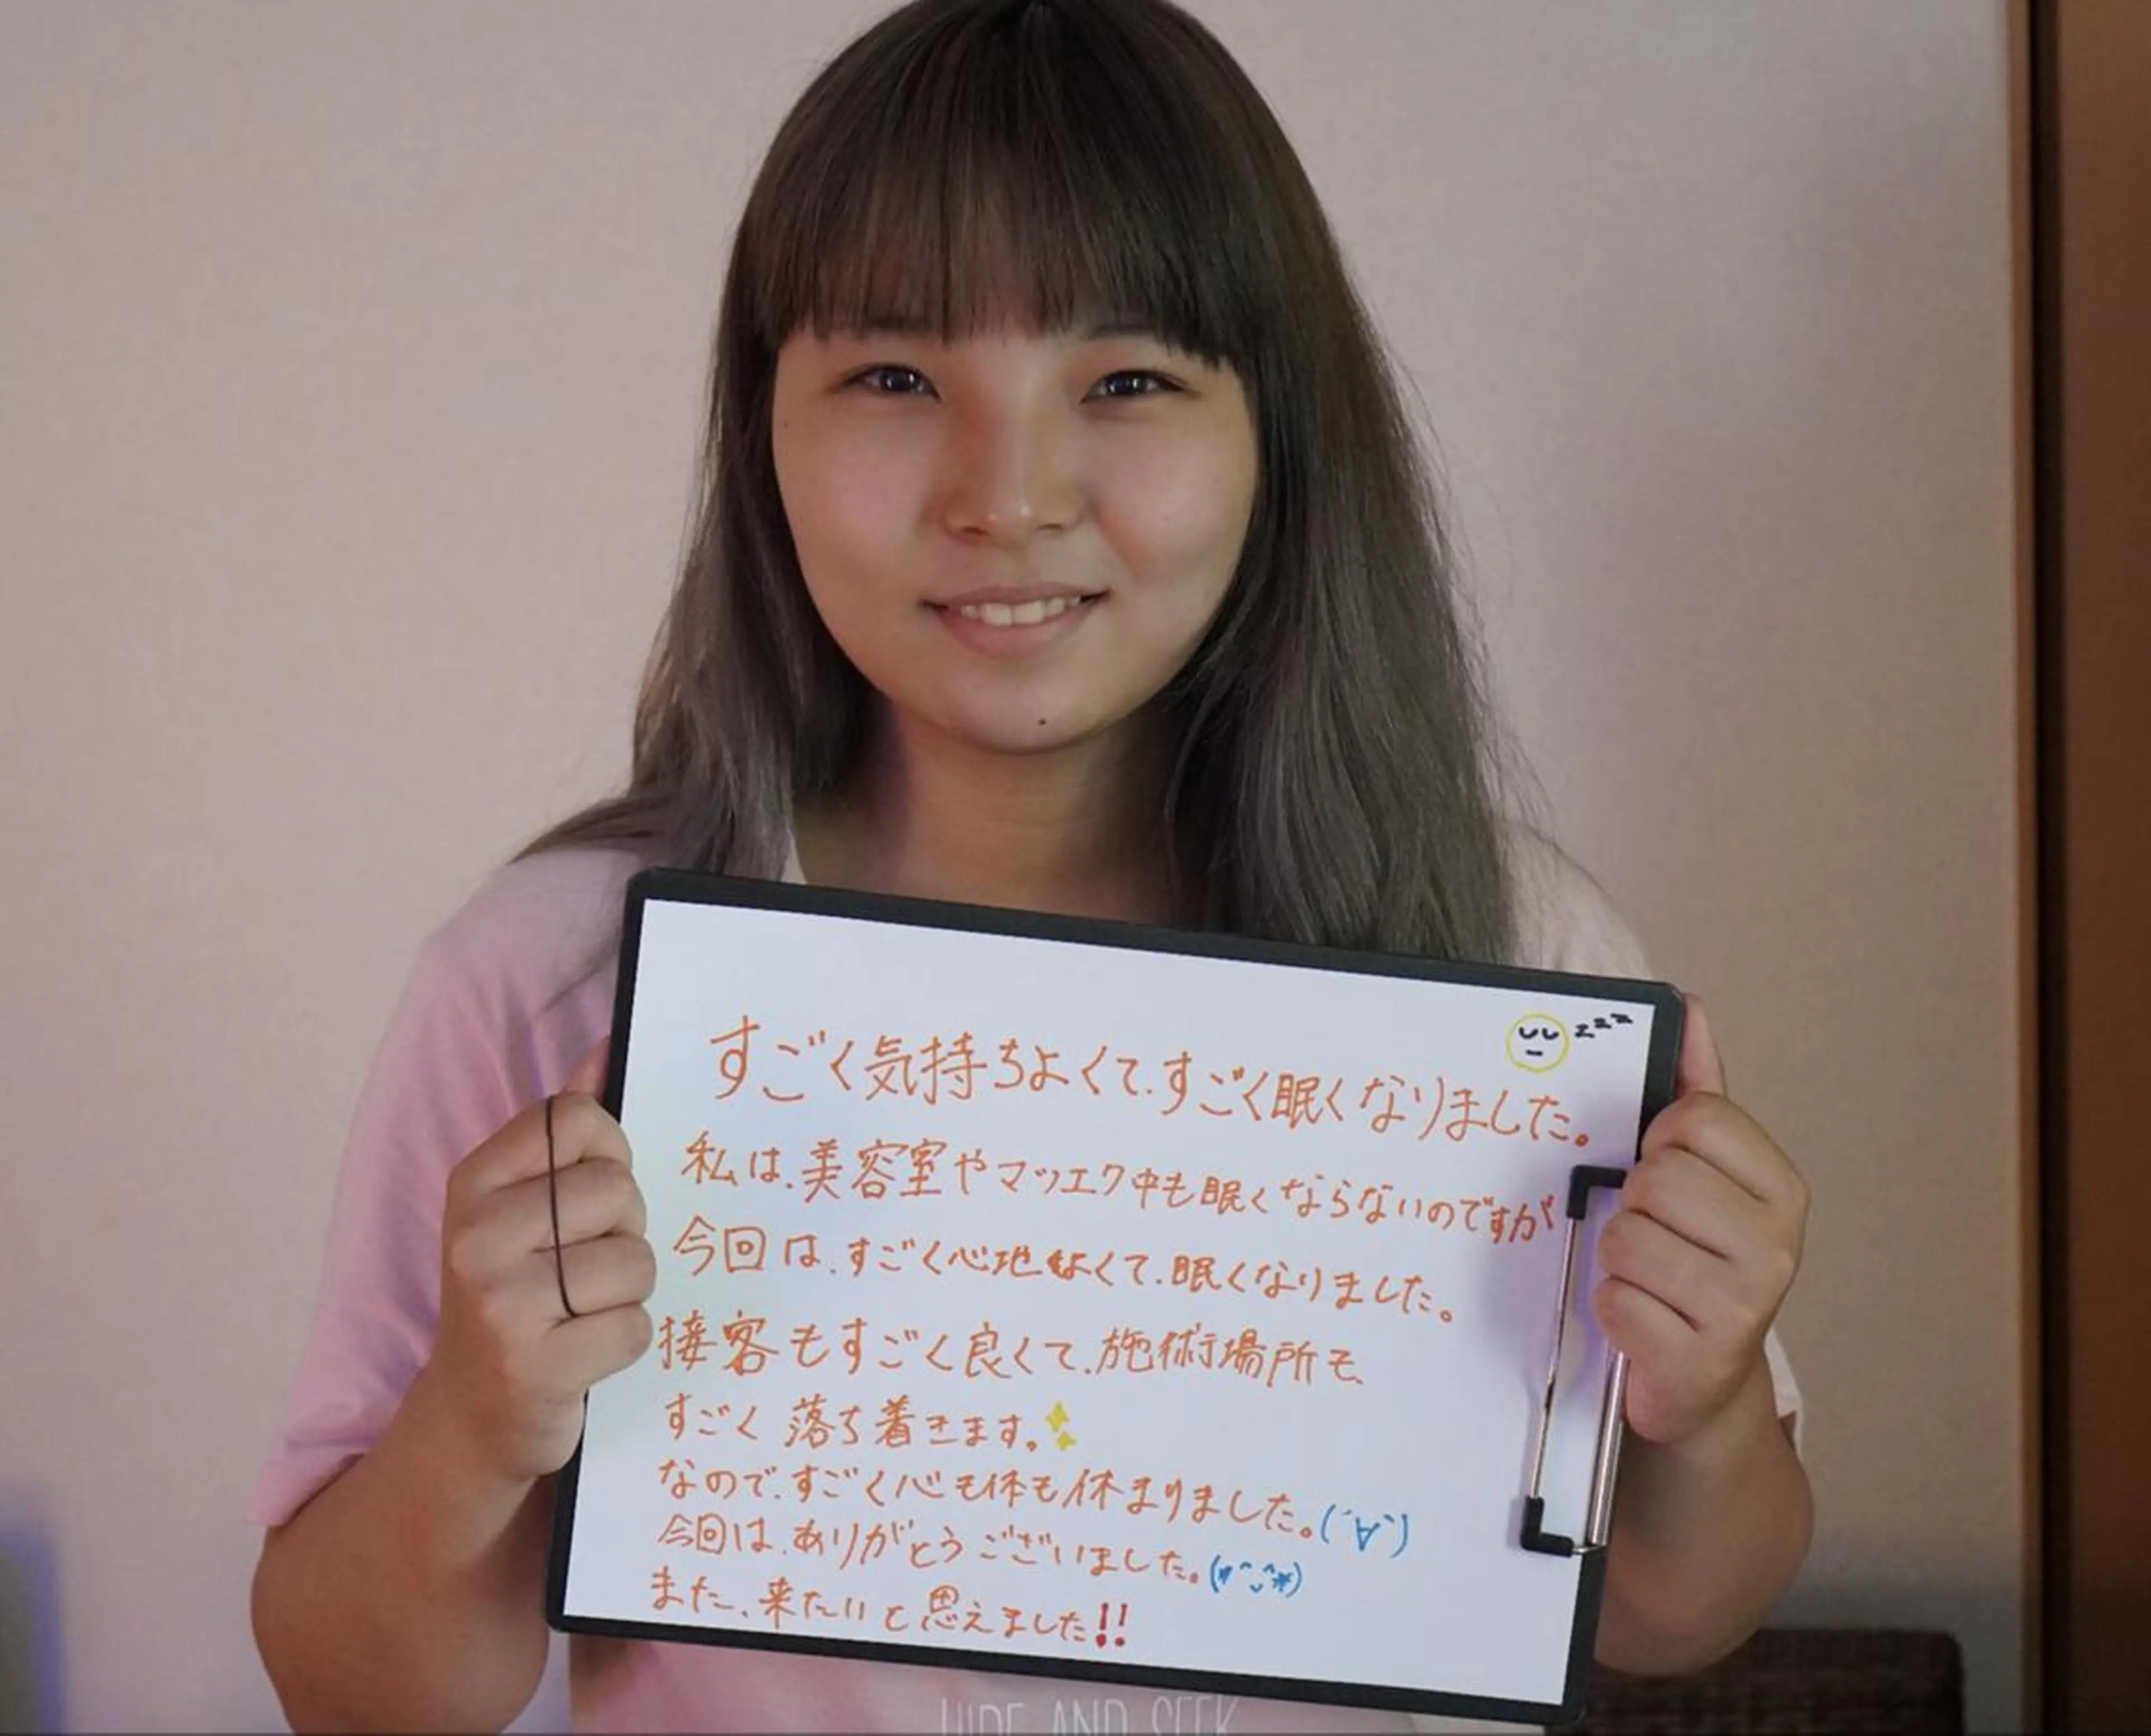 zzz
すごく気持ちよくて、すごく眠くなりました。
私は、美容室やマツエク中も眠くならないのですが
今回は、すごく心地よくて、眠くなりました。
接客もすごく良くて、施術場所も、
すごく落ち着きます。
なので、すごく心も体も休まりました。(´∀`)
今回は、ありがとうございました。(*^^*)
また、来たいと思えました!!
HIDE AND SEEK